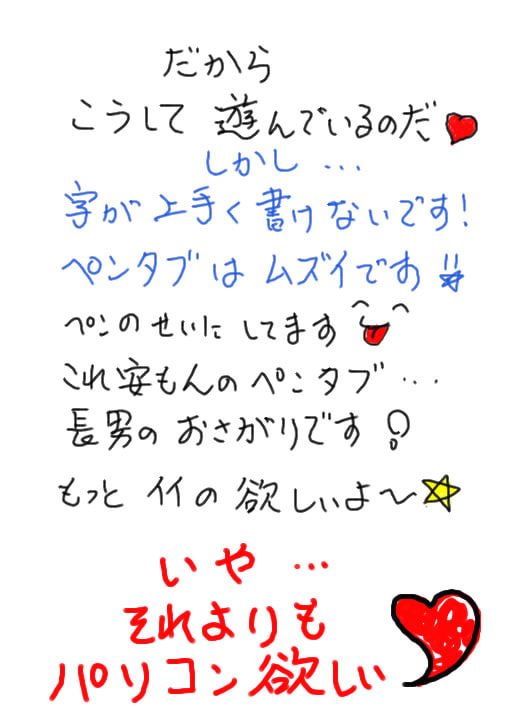 だから
こうして 遊んでいるのだ
しかし ...
字が上手く書けないです!
ペンタブは ムズイです!!
ペンのせいに してます
これ安もんの ペンタブ...
長男の おさがりです!
もっと イイの 欲しいよ〜
いや...
それよりも
パソコン欲しい